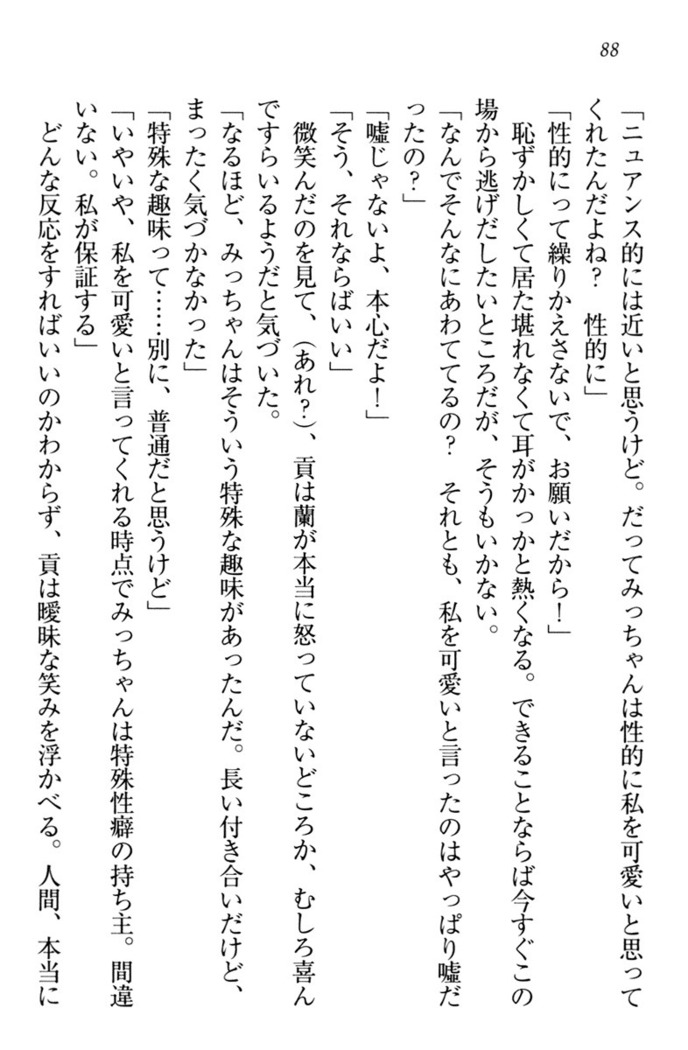 88
「ニュアンス的には近いと思うけど。だってみっちゃんは性的に私を可愛いと思って
くれたんだよね？　性的に」
「性的にって繰りかえさないで、お願いだから！」
　恥ずかしくて居た堪れなくて耳がかっかと熱くなる。できることならば今すぐこの
場から逃げだしたいところだが、そうもいかない。
「なんでそんなにあわててるの？　それとも、私を可愛いと言ったのはやっぱり嘘だ
ったの？」
「嘘じゃないよ、本心だよ！」
「そう、それならばいい」
　微笑んだのを見て、（あれ？）、貢は蘭が本当に怒っていないどころか、むしろ喜ん
ですらいるようだと気づいた。
「なるほど、みっちゃんはそういう特殊な趣味があったんだ。長い付き合いだけど、
まったく気づかなかった」
「特殊な趣味って……別に、普通だと思うけど」
「いやいや、私を可愛いと言ってくれる時点でみっちゃんは特殊性癖の持ち主。間違
いない。私が保証する」
　どんな反応をすればいいのかわからず、貢は曖昧な笑みを浮かべる。人間、本当に